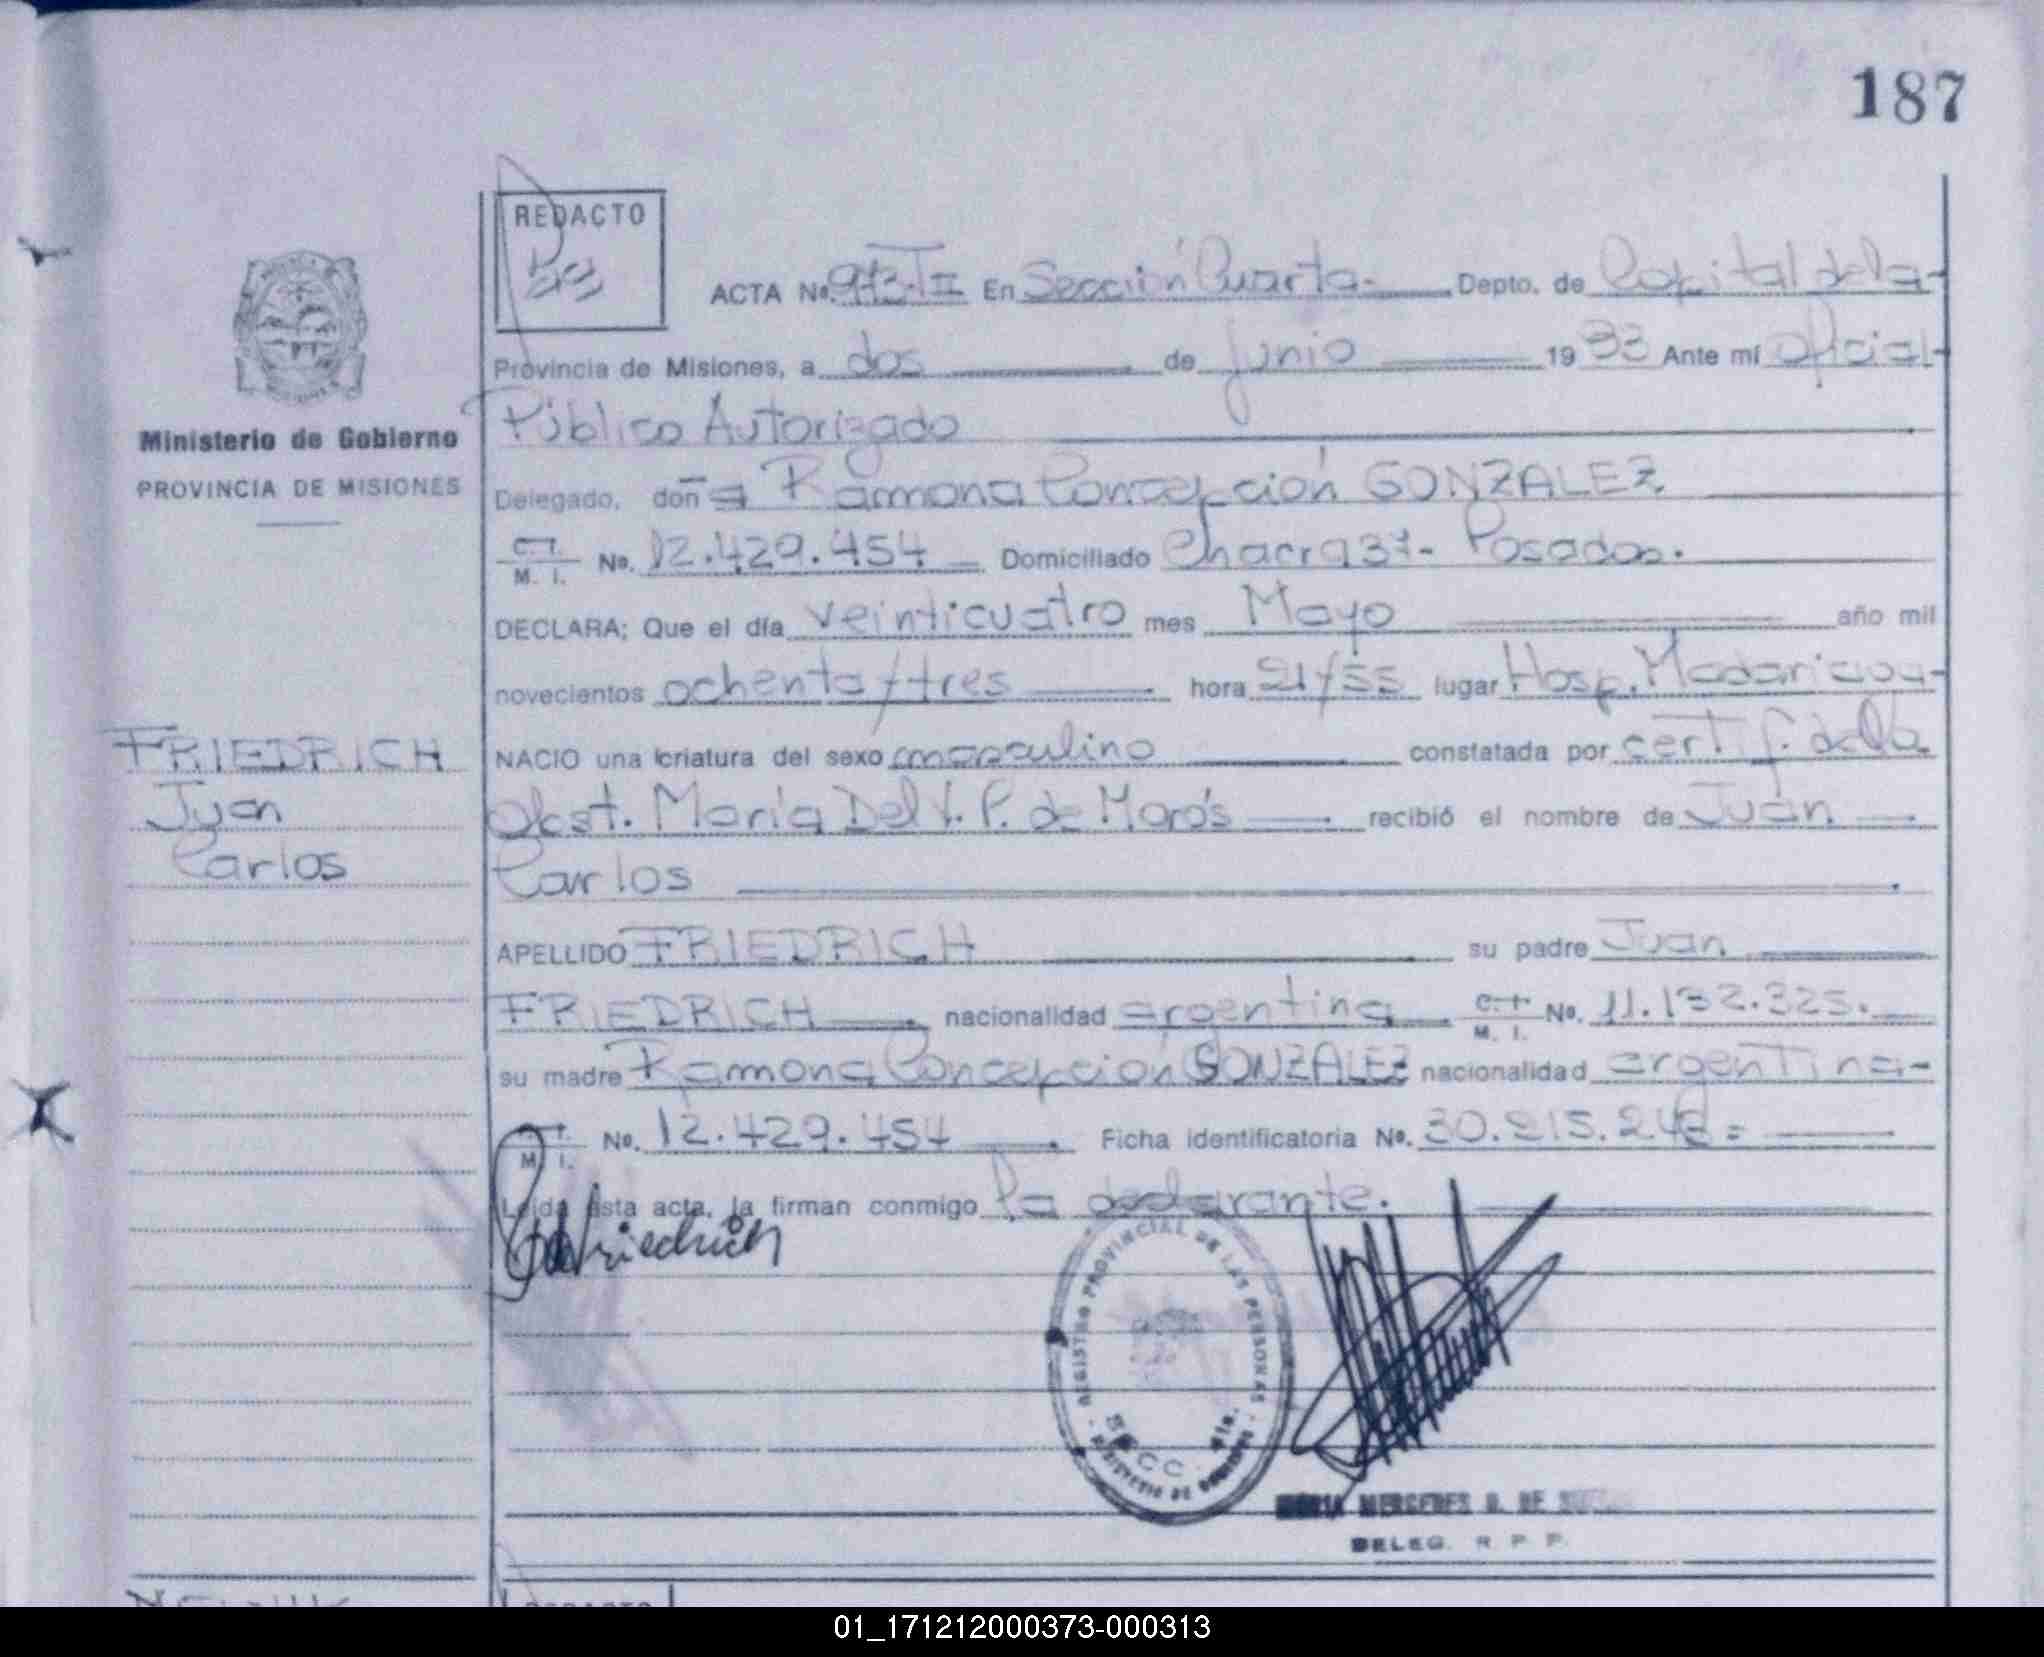 187
REDACTO
ACTA No. 973-TII En Sección Cuarta.- Depto. de Capital de la-
Provincia de Misiones, a dos de junio 1983 Ante mí Oficial-
Ministerio de Gobierno
Público Autorizado
PROVINCIA DE MISIONES
Delegado, doña Ramona Concepción GONZALEZ
C. I. M. I. No. 12.429.454 Domiciliado Chacra 37- Posadas.
DECLARA; Que el día veinticuatro mes Mayo año mil
novecientos ochenta y tres hora 21/55 lugar Hosp. Madariaga-
FRIEDRICH
NACIO una criatura del sexo masculino constatada por certif. de la
Juan
Obst. María Del V. P. de Marós recibió el nombre de Juan
Carlos
Carlos
APELLIDO FRIEDRICH su padre Juan
FRIEDRICH nacionalidad argentina C. I. M. I. No. 11.132.325.
su madre Ramona Concepción GONZALEZ nacionalidad argentina-
M. I. No. 12.429.454 Ficha identificatoria No. 30.215.248=
Leída ésta acta, la firman conmigo la declarante.
Friedrich
REGISTRO PROVINCIAL DE LAS PERSONAS
SECC. 4ta.
MINISTERIO DE GOBIERNO
MARIA MERCEDES D. DE
DELEG. R. P. P.
REDACTO
01_171212000373-000313